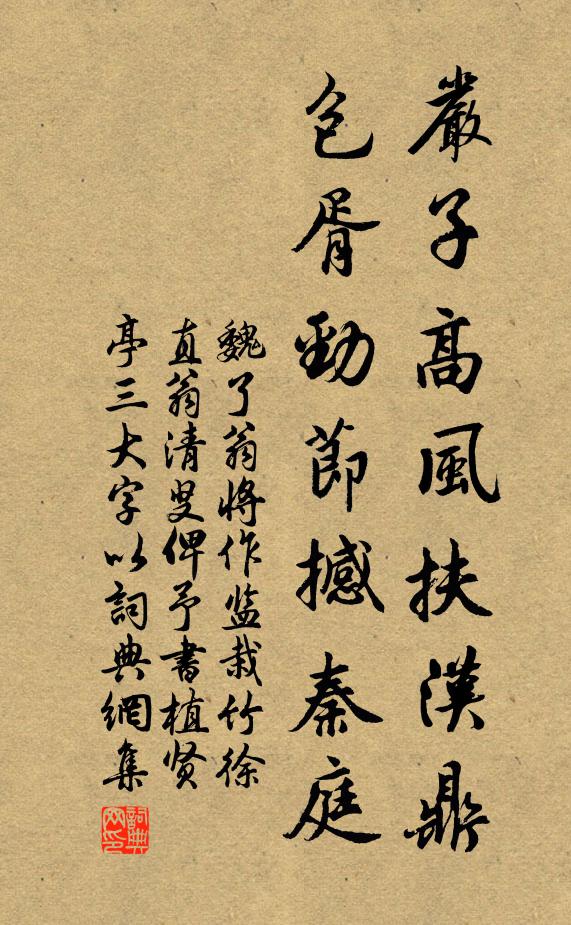 嚴子高風扶漢鼎
包胥勁節撼秦庭
魏了翁將作監栽竹徐
直翁清叟俾予書植贤
亭三大字以詞典網集
詞典网印